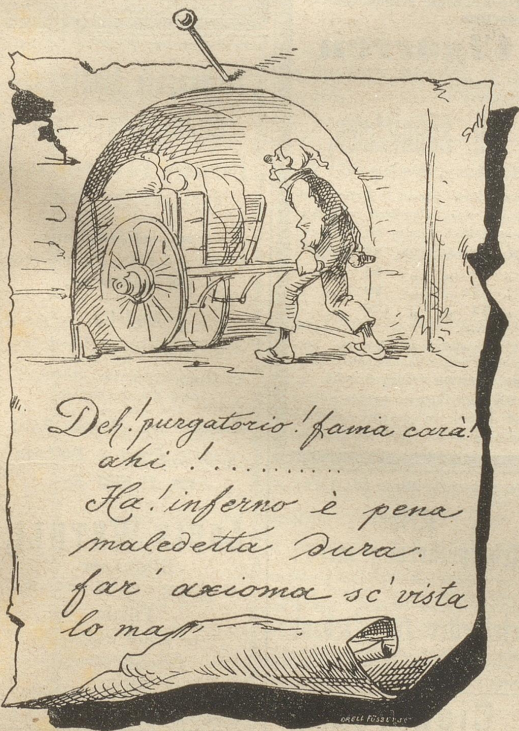 Deh! purgatorio! fama carà!
ahi !..........
Ha! inferno è pena
maledetta dura.
far' axioma sc' vista
lo
ORELL FÜSSLI